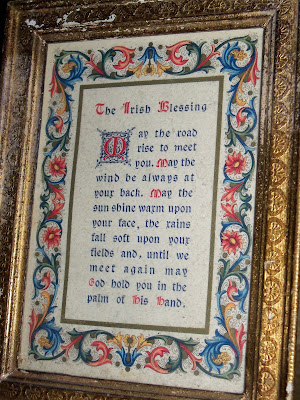 The Irish Blessing
May the road
rise to meet
you. May the
wind be always at
your back. May the
sun shine warm upon
your face, the rains
fall soft upon your
fields and, until we
meet again may
God hold you in the
palm of His Hand.